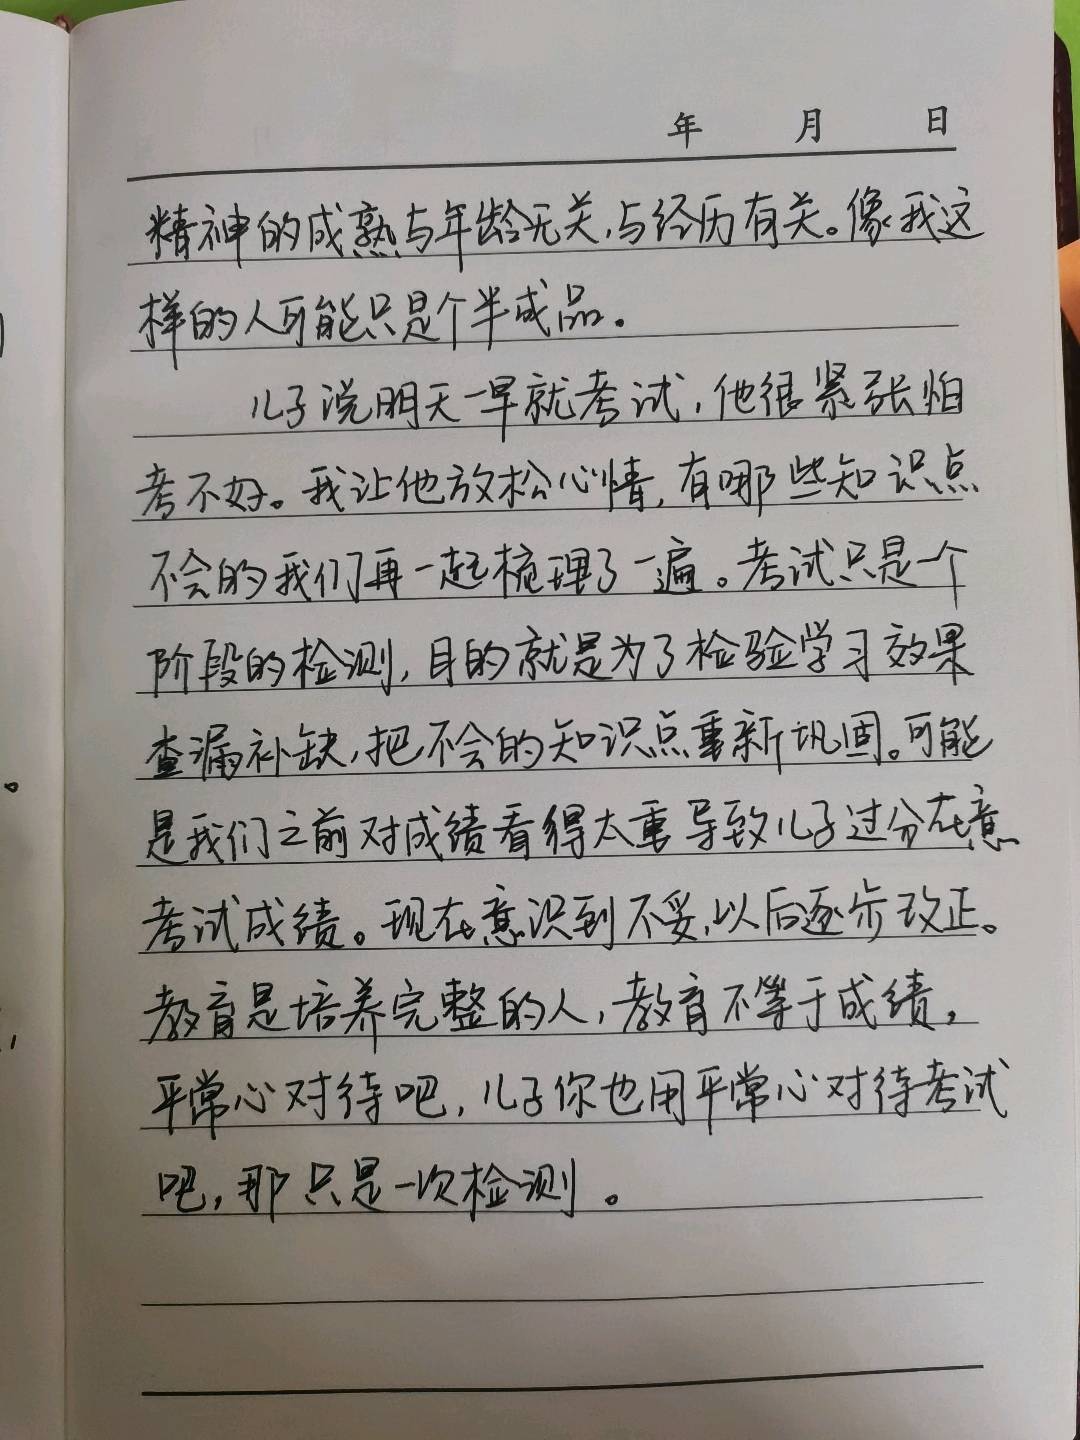 年 月 日
精神的成熟与年龄无关,与经历有关。像我这
样的人可能只是个半成品。
儿子说明天一早就考试,他很紧张怕
考不好。我让他放松心情,有哪些知识点
不会的我们再一起梳理了一遍。考试只是一个
阶段的检测,目的就是为了检验学习效果
查漏补缺,把不会的知识点重新巩固。可能
是我们之前对成绩看得太重导致儿子过分在意
考试成绩。现在意识到不妥,以后逐步改正。
教育是培养完整的人,教育不等于成绩,
平常心对待吧,儿子你也用平常心对待考试
吧,那只是一次检测。